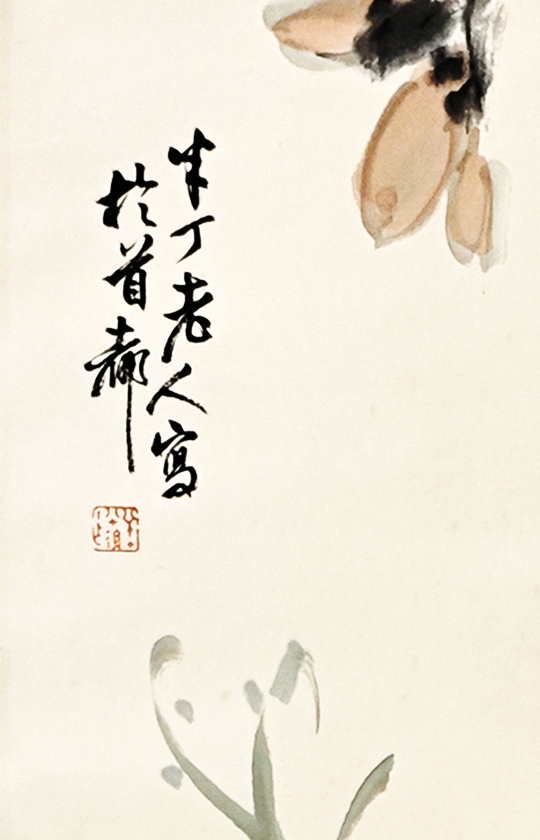 半丁老人寫
於首都